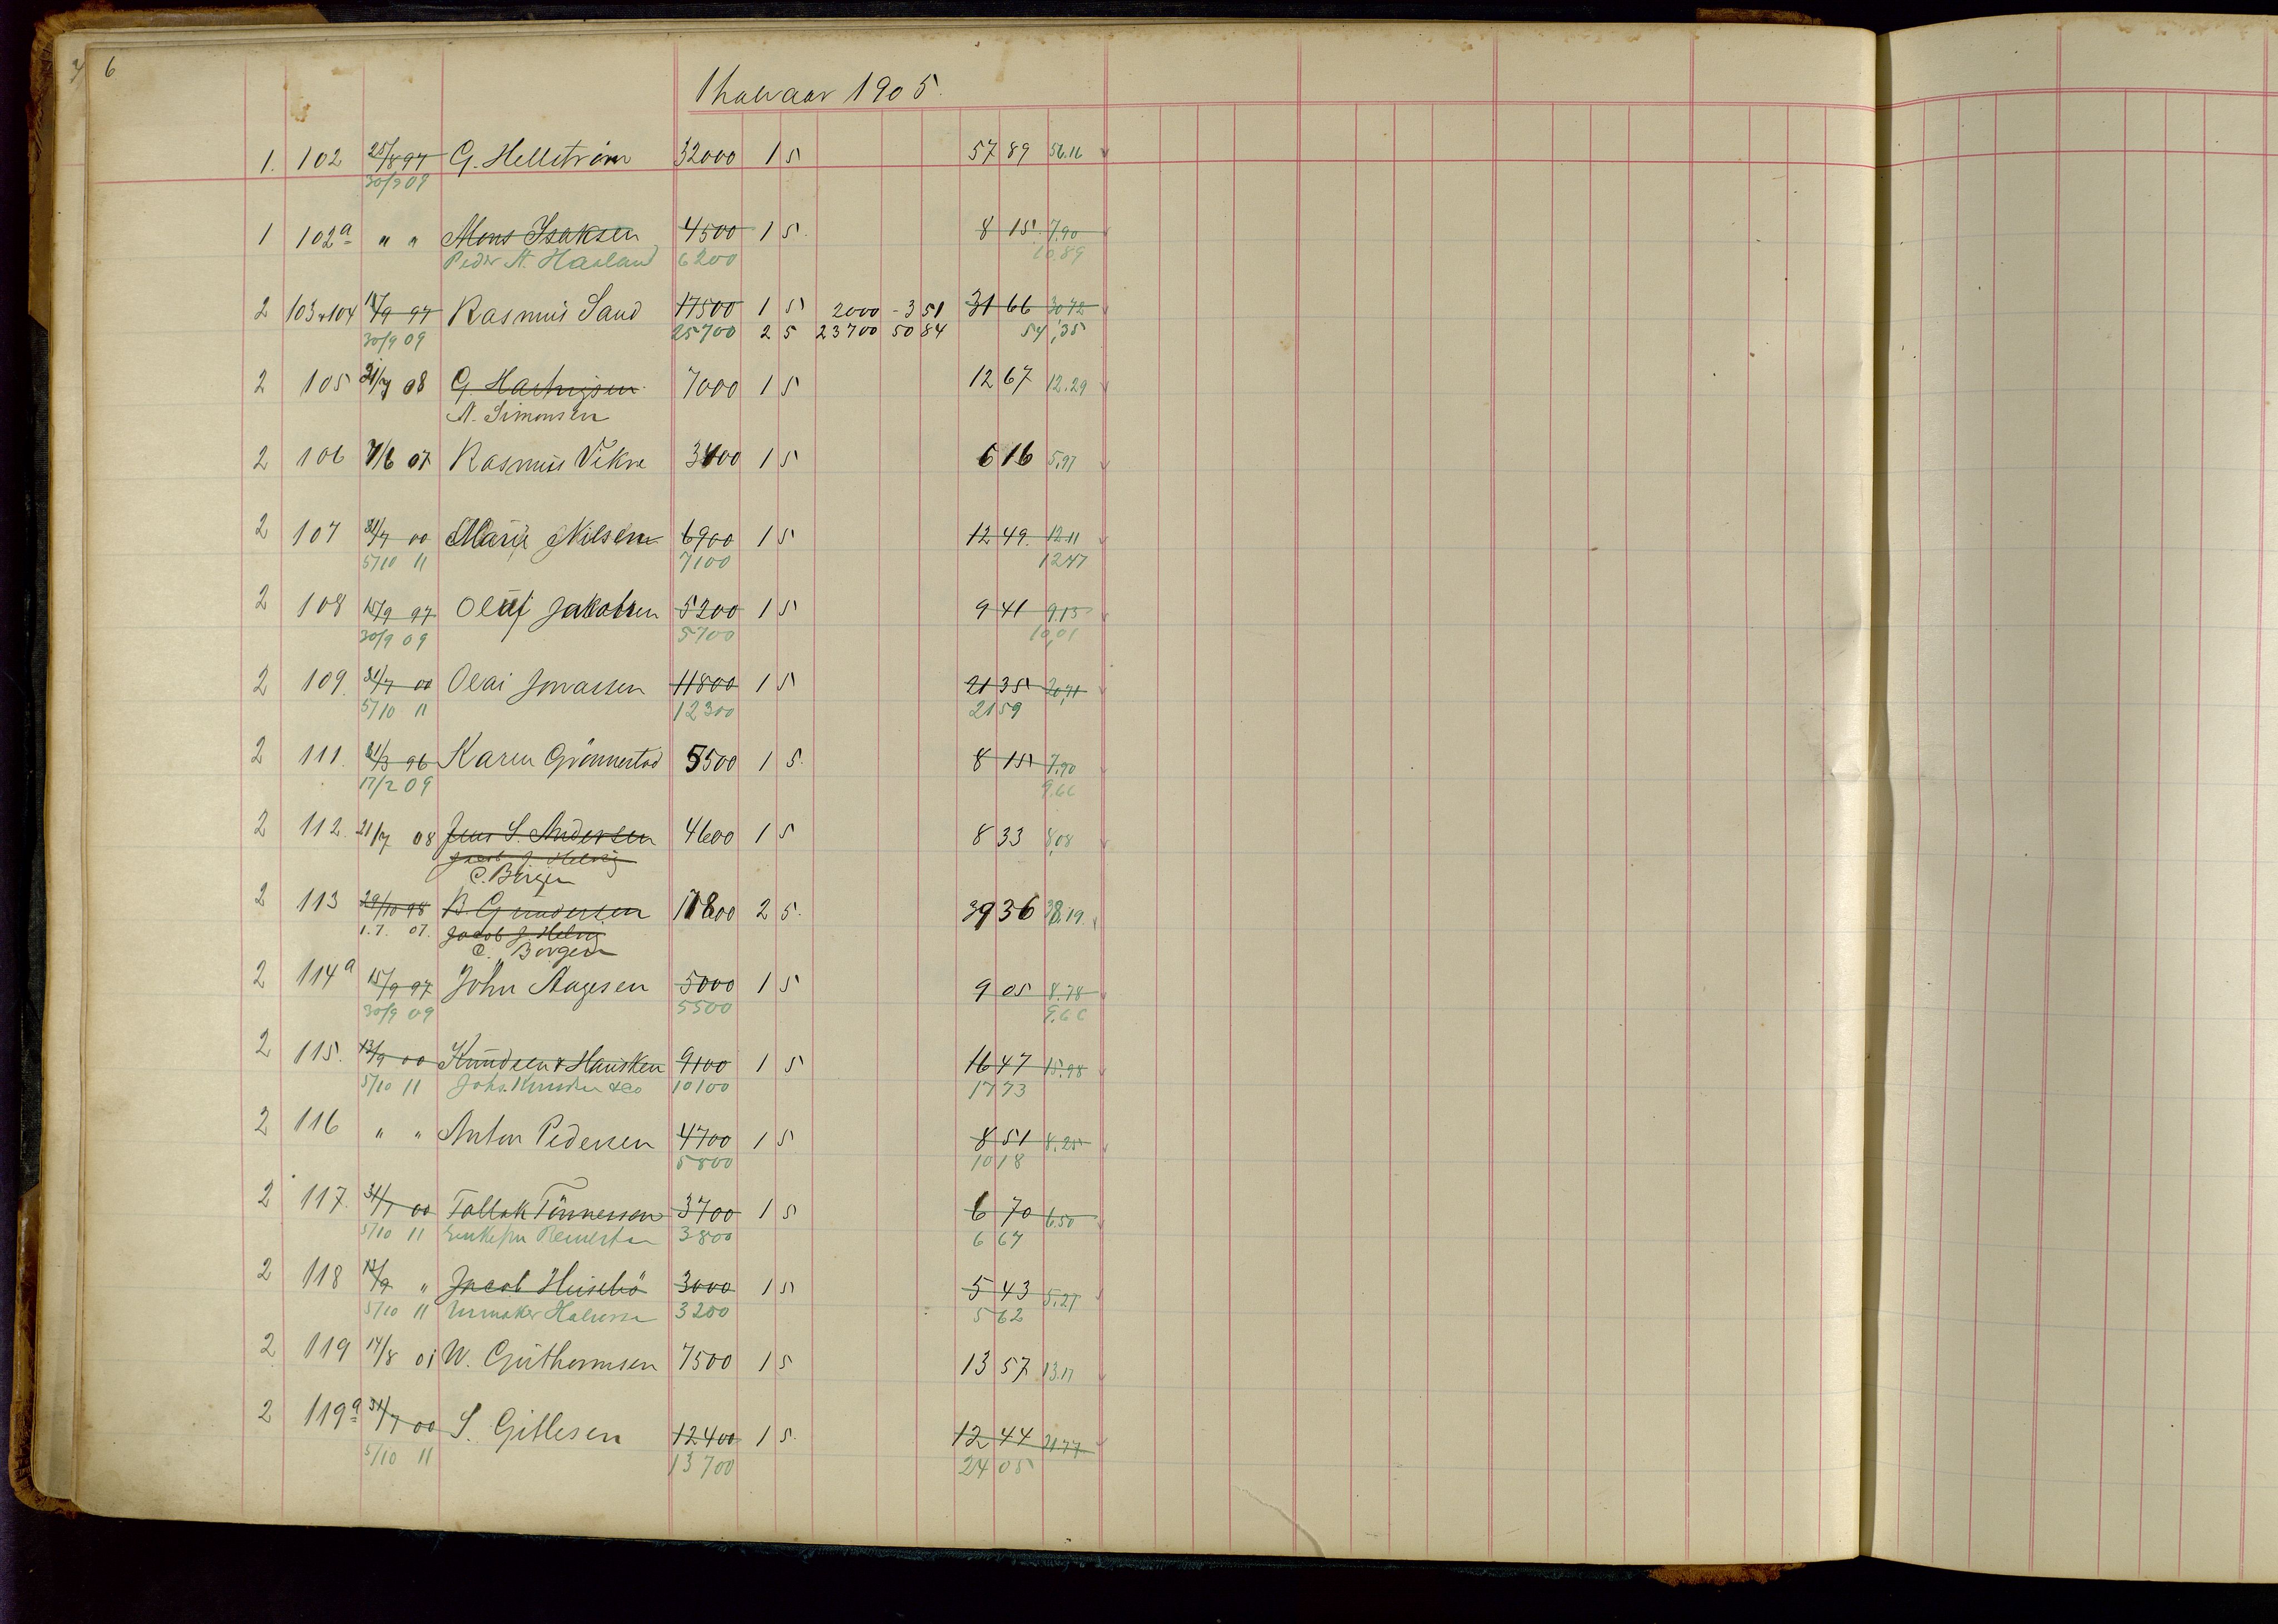 6
1 halvaar 1905.
1. 102 25/8 97 G. Hellström 32000 1 5 57 89 56.16
30/9 09
1 102a " " Mons Isaksen 4500 1 5. 8 15. 7,90
Peder A. Haaland 6200 10,89
2 103+104 15/9 97 Rasmus Sand 17500 1 5 2000 - 3 51 31 66 30 72
30/9 09 25700 2 5 23700 50 84 54,35
2 105 21/7 08 7000 1 5 12 67 12.29
A. Simonsen
2 106 7/6 07 Rasmus Vikre 3400 1 5 6 16 5,97
2 107 31/7 00 Marie Nilsen 6900 1 5 12 49. 12.11
5/10 11 7100 12 47
2 108 15/9 97 Oluf Jakobsen 5200 1 5 9 41 9.13
30/9 09 5700 10,01
2 109. 31/7 00 Olai Jonassen 11800 1 5 21 35 20,71
5/10 11 12300 21 59
2 111. 31/3 96 Karen Grönnestad 5500 1 5. 8 15 7,90
17/2 09 9,66
2 112. 21/7 08 Jens S. Andersen 4600 1 5 8 33 8,08
Jacob J. Helvig
C. Borgen
2 113 29/10 98 B. Gundersen 17800 2 5. 39 36 38.19.
1.7. 07. Jacob J. Helvig
C. Borgen
2 114a 15/9 97 John Aagesen 5000 1 5 9 05 8.78
30/9 09 5500 9.66
2 115. 13/9 00 Knudsen & Hausken 9100 1 5 16 47 15.98
5/10 11 Johs. Knudsen & Co 10100 17 73
2 116 " " Anton Pedersen 4700 1 5 8 51 8.25
5800 10 18
2 117. 31/7 00 Tallak Tönnessen 3700 1 5 6 70 6.50
5/10 11 Enkefru 3800 6 67
2 118 13/9 " Jacob Huisebö 3000 1 5 5 43 5.27
5/10 11 Urmaker 3200 5 62
2 119 14/8 01 W. Guthormsen 7500 1 5 13 57 13.17
2 119a 31/7 00 S. Gitlesen 12400 1 5. 12 44 21.77
5/10 11 13700 24 05